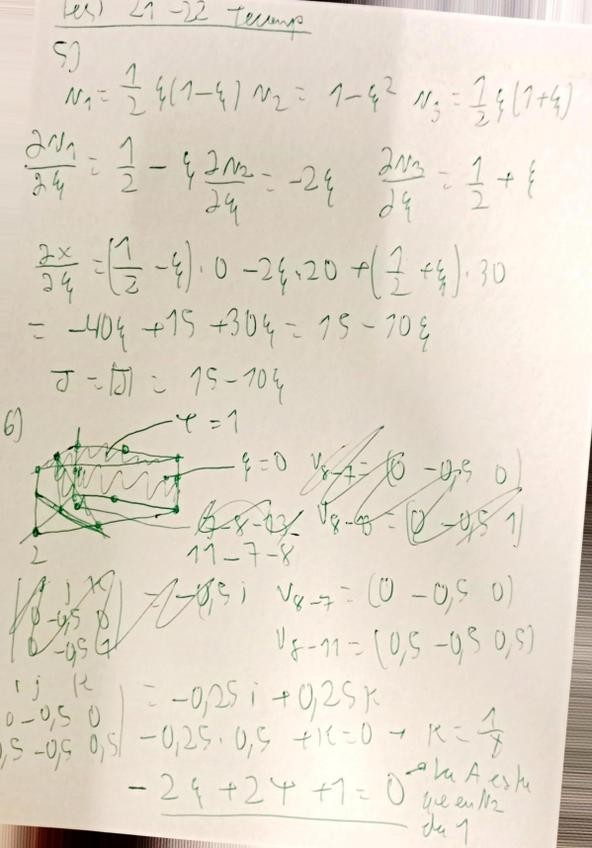 Test 21-22 Tecamp
5)
N1 = 1/2 ξ(1-ξ) N2 = 1-ξ² N3 = 1/2 ξ(1+ξ)
∂N1/∂ξ = 1/2 - ξ ∂N2/∂ξ = -2ξ ∂N3/∂ξ = 1/2 + ξ
∂x/∂ξ = (1/2 - ξ)·0 - 2ξ·20 + (1/2 + ξ)·30
= -40ξ + 15 + 30ξ = 15 - 10ξ
J = |J| = 15 - 10ξ
6)
Ψ = 1
ξ = 0 V8-7 = (0 -0,5 0)
V8-8 = (0 -0,5 1)
11-7-8
2
i j k
0 -0,5 0
0 -0,5 1
= -0,5 i V8-7 = (0 -0,5 0)
V8-11 = (0,5 -0,5 0,5)
i j k
0 -0,5 0
0,5 -0,5 0,5
= -0,25 i + 0,25 k
-0,25·0,5 + K = 0 → K = 1/8
-2ξ + 2Ψ + 1 = 0
que en N2
da 1